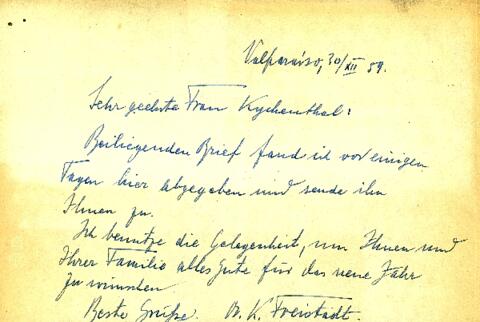 Valparaíso, 30/XII 59.
Sehr geehrte Frau Kychenthal:
Beiliegenden Brief fand ich vor einigen
Tagen hier abgegeben und sende ihn
Ihnen zu.
Ich benutze die Gelegenheit, um Ihnen und
Ihrer Familie alles Gute für das neue Jahr
zu wünschen.
Beste Grüße. K. Freistadt.